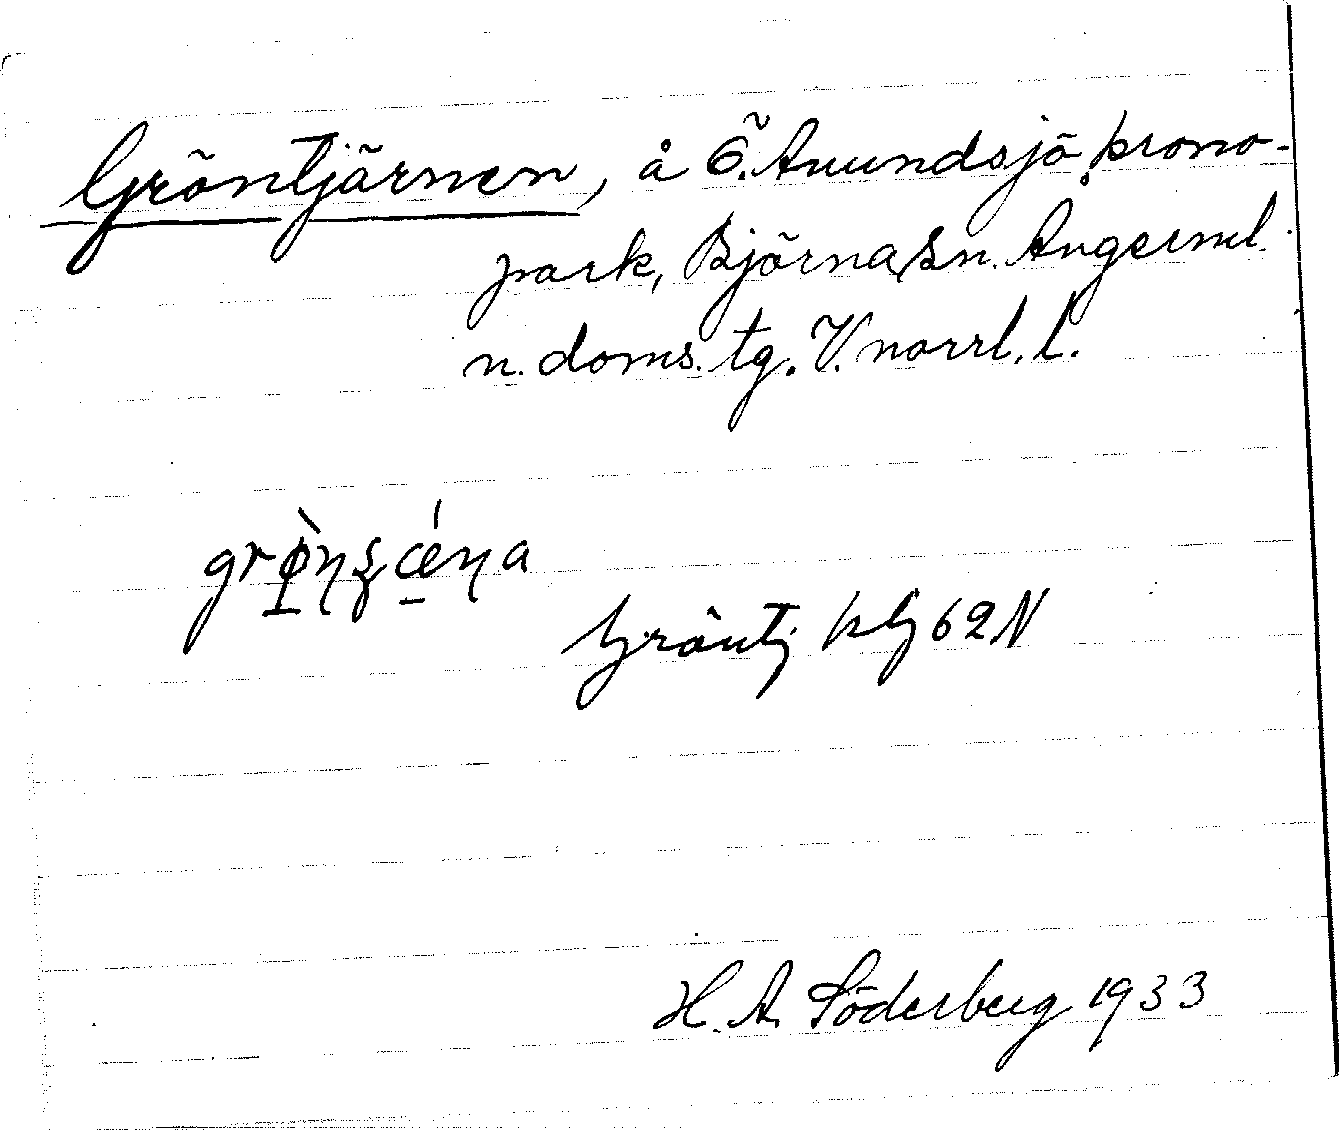 Gröntjärnen, å Ö. Anundsjö krono-
park, Björna sn. Ångerml.
n. doms. tg. V. norrl. l.
Gröntj. kG 62 N
H. A. Söderberg 1933